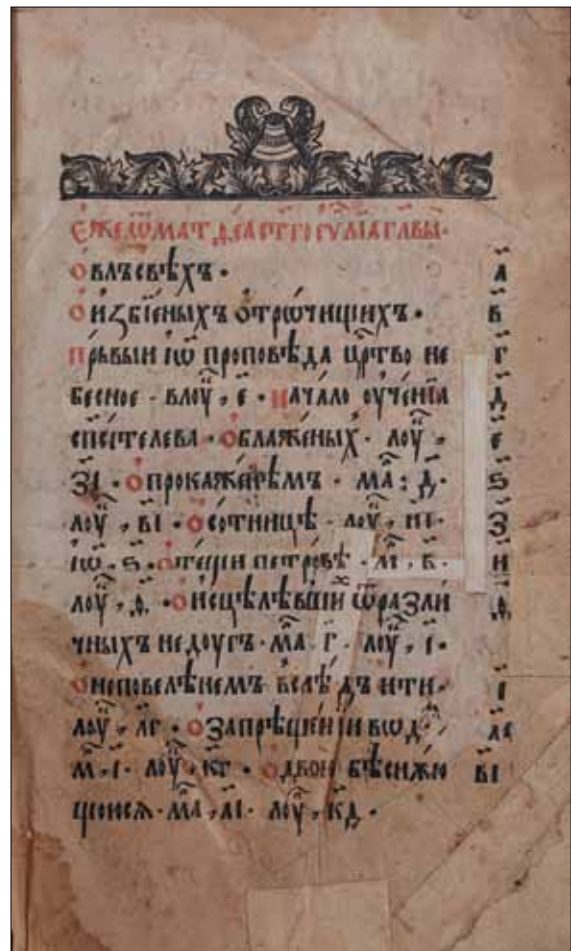 Є҆же ѿ мат деа ст҃го єѵⷢ҇лїа главы·
О҆ влъсвѣхъ· а҃
О҆ и҆збїеныхъ ѻ҆трѡчищихъ· в҃
Прьвыи і҆ѡ҃ проповѣда цр҃тво не г҃
бесное· в лоу҃, є҃· Начало оу҆ченїа д҃
сп҃сителева· О҆ блаженыхъ· лоу҃, є҃
з҃і· О҆ прокаженѣмъ· ма҃: д҃· ѕ҃
лоу҃, в҃і· О҆ сотницѣ· лоу҃, н҃і· з҃
і҆ѡ҃, ѕ҃· О҆ тещи петровѣ· м҃, в҃· и҃
лоу҃, ѳ҃· О҆ и҆сцѣлѣвшїи҆х ѿ разли ѳ҃
чныхъ недоугъ· ма҃, г҃· лоу҃, і҃·
О҆ неповелѣнемъ въслѣдъ и҆ти· і҃
лоу҃, л҃г· О҆ запрѣщенїи вѡд· а҃і
м҃, і҃· лоу҃, к҃г· О҆ двою бѣснѫю в҃і
щоюсѧ· ма҃, а҃і· лоу҃, к҃д·